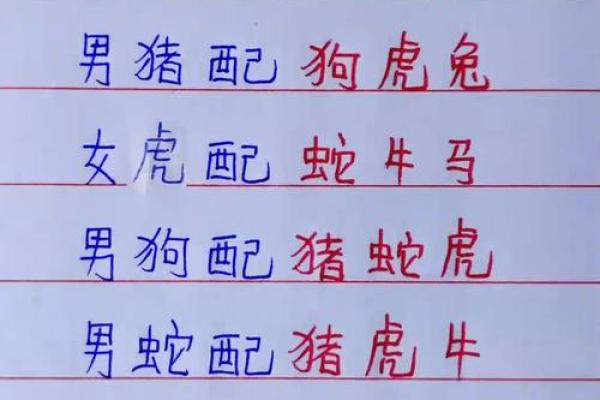 男猪配狗虎兔
女虎配蛇牛马
男狗配猪蛇虎
男蛇配猪虎牛